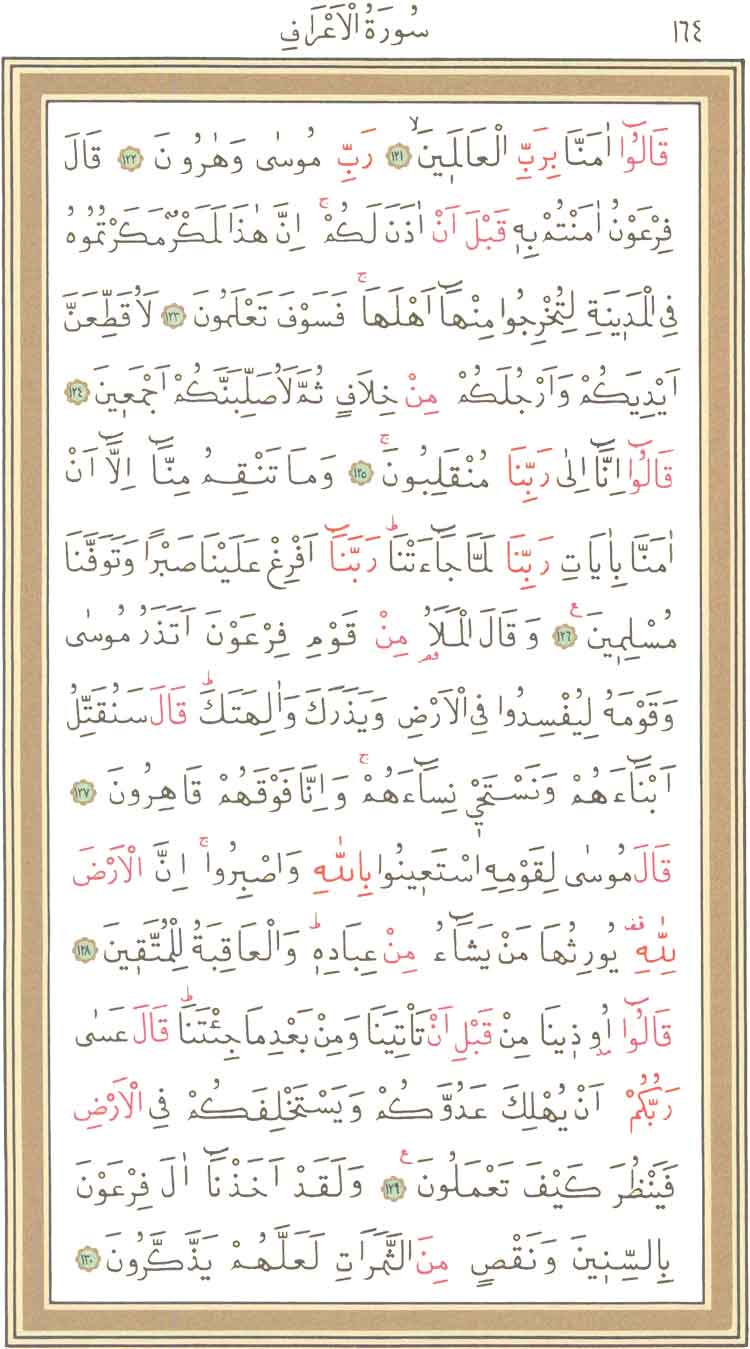 ١٦٤ سُورَةُ الْاَعْرَافِ
قَالُٓوا اٰمَنَّا بِرَبِّ الْعَالَمٖينَۙ ﴿١٢١﴾ رَبِّ مُوسٰى وَهٰرُونَ ﴿١٢٢﴾ قَالَ
فِرْعَوْنُ اٰمَنْتُمْ بِهٖ قَبْلَ اَنْ اٰذَنَ لَكُمْۚ اِنَّ هٰذَا لَمَكْرٌ مَكَرْتُمُوهُ
فِي الْمَدٖينَةِ لِتُخْرِجُوا مِنْهَٓا اَهْلَهَاۚ فَسَوْفَ تَعْلَمُونَ ﴿١٢٣﴾ لَاُقَطِّعَنَّ
اَيْدِيَكُمْ وَاَرْجُلَكُمْ مِنْ خِلَافٍ ثُمَّ لَاُصَلِّبَنَّكُمْ اَجْمَعٖينَ ﴿١٢٤﴾
قَالُٓوا اِنَّٓا اِلٰى رَبِّنَا مُنْقَلِبُونَۚ ﴿١٢٥﴾ وَمَا تَنْقِمُ مِنَّٓا اِلَّٓا اَنْ
اٰمَنَّا بِاٰيَاتِ رَبِّنَا لَمَّا جَٓاءَتْنَاؕ رَبَّنَٓا اَفْرِغْ عَلَيْنَا صَبْرًا وَتَوَفَّنَا
مُسْلِمٖينَࣖ ﴿١٢٦﴾ وَقَالَ الْمَلَاُ مِنْ قَوْمِ فِرْعَوْنَ اَتَذَرُ مُوسٰى
وَقَوْمَهُ لِيُفْسِدُوا فِي الْاَرْضِ وَيَذَرَكَ وَاٰلِهَتَكَؕ قَالَ سَنُقَتِّلُ
اَبْنَٓاءَهُمْ وَنَسْتَحْيٖ نِسَٓاءَهُمْۚ وَاِنَّا فَوْقَهُمْ قَاهِرُونَ ﴿١٢٧﴾
قَالَ مُوسٰى لِقَوْمِهِ اسْتَعٖينُوا بِاللّٰهِ وَاصْبِرُواۚ اِنَّ الْاَرْضَ
لِلّٰهِ يُورِثُهَا مَنْ يَشَٓاءُ مِنْ عِبَادِهٖؕ وَالْعَاقِبَةُ لِلْمُتَّقٖينَ ﴿١٢٨﴾
قَالُٓوا اُوذٖينَا مِنْ قَبْلِ اَنْ تَأْتِيَنَا وَمِنْ بَعْدِ مَا جِئْتَنَاؕ قَالَ عَسٰى
رَبُّكُمْ اَنْ يُهْلِكَ عَدُوَّكُمْ وَيَسْتَخْلِفَكُمْ فِي الْاَرْضِ
فَيَنْظُرَ كَيْفَ تَعْمَلُونَࣖ ﴿١٢٩﴾ وَلَقَدْ اَخَذْنَٓا اٰلَ فِرْعَوْنَ
بِالسِّنٖينَ وَنَقْصٍ مِنَ الثَّمَرَاتِ لَعَلَّهُمْ يَذَّكَّرُونَ ﴿١٣٠﴾